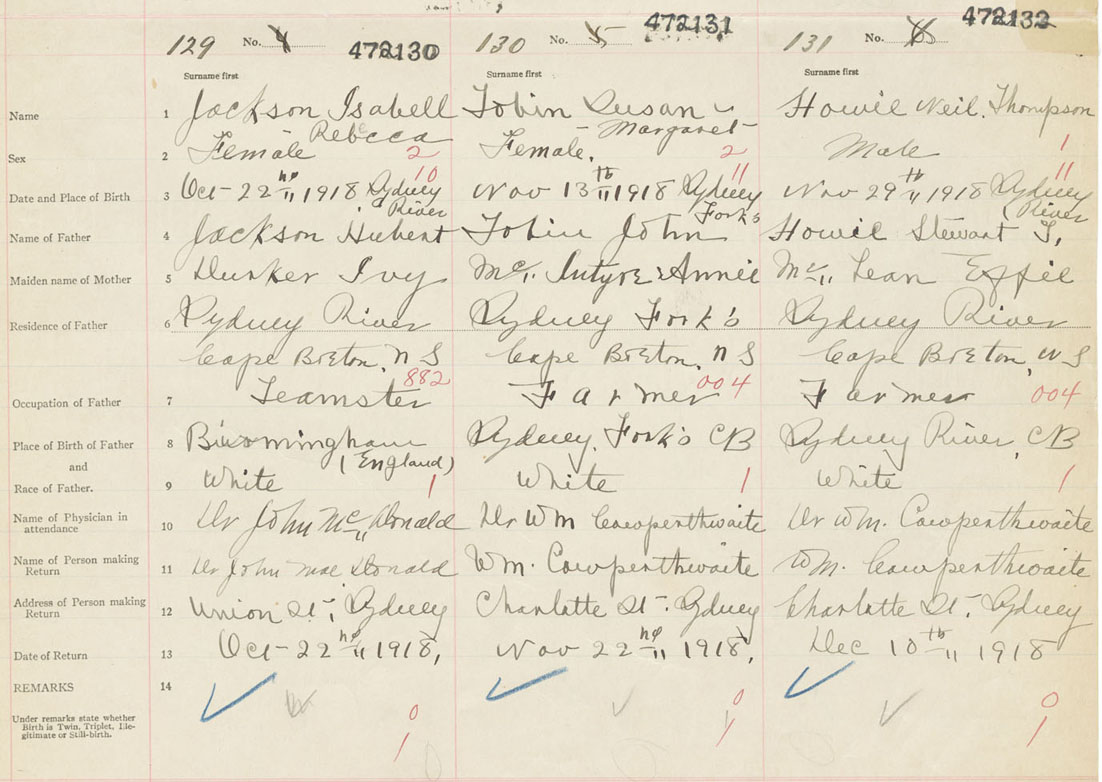 129 No. 4 472130 130 No. 5 472131 131 No. 6 472132
Surname first Surname first Surname first
Name 1 Jackson Isabell Tobin Susan - Howie Neil Thompson
Rebecca - Margaret -
Sex 2 Female 2 Female. 2 Male 1
10 11 11
Date and Place of Birth 3 Oct - 22nd 1918 Sydney Nov 13th 1918 Sydney Nov 29th 1918 Sydney
River Fork's River
Name of Father 4 Jackson Hubert Tobin John Howie Stewart T.
Maiden name of Mother 5 Ivy Mc Intyre Annie Mc Lean Effie
Residence of Father 6 Sydney River Sydney Fork's Sydney River
Cape Breton, N S Cape Breton, N S Cape Breton, N S
882 004 004
Occupation of Father 7 Teamster Farmer Farmer
Place of Birth of Father 8 Birmingham Sydney, Fork's CB Sydney River, CB
and (England)
Race of Father. 9 White 1 White 1 White 1
Name of Physician in
attendance 10 Dr John Mc Donald Dr Wm Cowperthwaite Dr Wm. Cowperthwaite
Name of Person making
Return 11 Dr John Mac Donald Wm. Cowperthwaite Wm. Cowperthwaite
Address of Person making
Return 12 Union St, Sydney Charlotte St - Sydney Charlotte St - Sydney
Date of Return 13 Oct - 22nd 1918, Nov 22nd 1918, Dec 10th 1918
REMARKS 14
Under remarks state whether
Birth is Twin, Triplet, Ille-
gitimate or Still-birth.
0 0 0
1 1 1